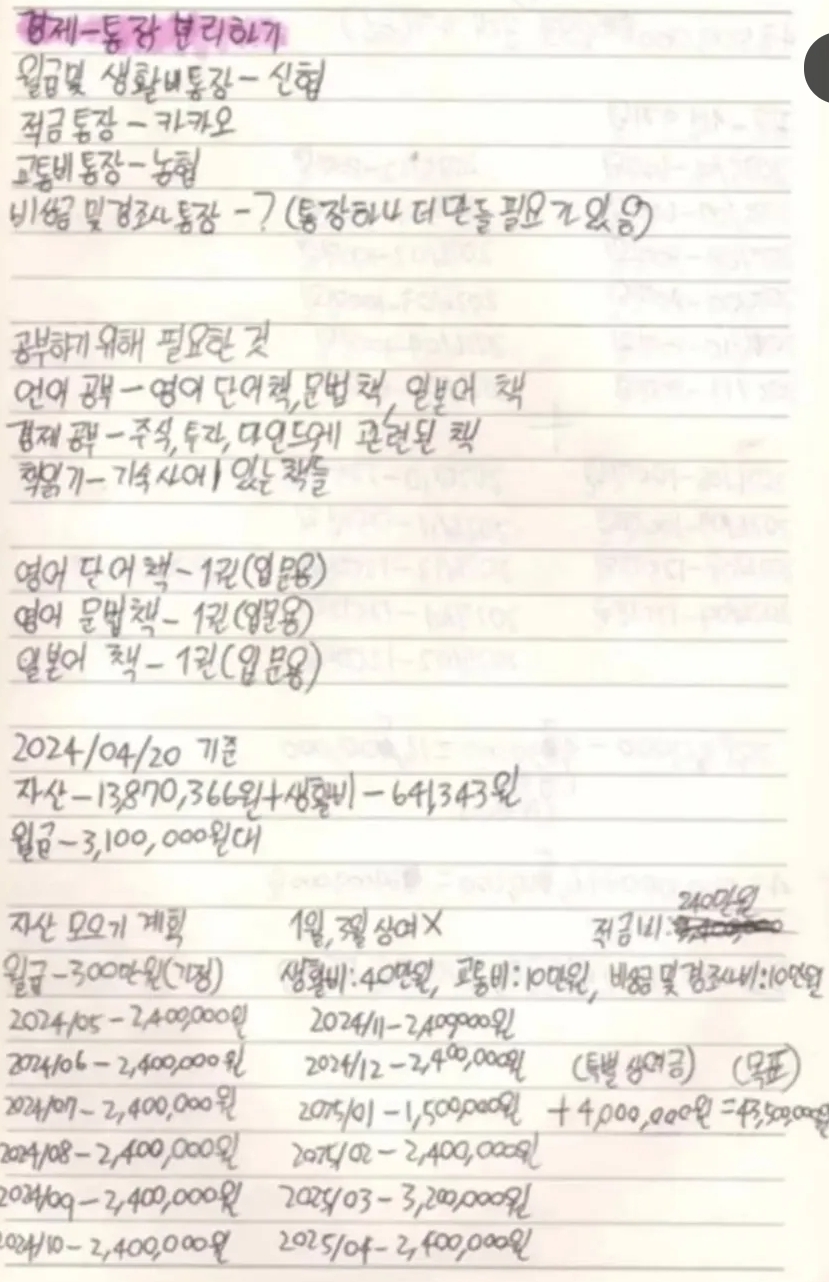 경제-통장 분리하기
월급및 생활비통장 - 신협
적금통장 - 카카오
교통비통장 - 농협
비상금 및 경조사통장 - ? (통장하나 더 만들 필요가 있음)
공부하기 위해 필요한 것
언어 공부 - 영어 단어책, 문법 책, 일본어 책
경제 공부 - 주식, 투자, 마인드에 관련된 책
책읽기 - 기숙사에 있는 책들
영어 단어 책 - 1권(입문용)
영어 문법책 - 1권(입문용)
일본어 책 - 1권(입문용)
2024/04/20 기준
자산 - 13,870,366원 + 생활비 - 641,343원
월급 - 3,100,000원대
자산 모으기 계획 1월, 3월 상여X 적금비: 240만원
월급 - 300만원(가정) 생활비: 40만원, 교통비: 10만원, 비상금 및 경조사비: 10만원
2024/05 - 2,400,000원 2024/11 - 2,400,000원
2024/06 - 2,400,000원 2024/12 - 2,400,000원 (특별 상여금) (목표)
2024/07 - 2,400,000원 2025/01 - 1,500,000원 + 4,000,000원 = 43,500,000원
2024/08 - 2,400,000원 2025/02 - 2,400,000원
2024/09 - 2,400,000원 2025/03 - 3,200,000원
2024/10 - 2,400,000원 2025/04 - 2,400,000원